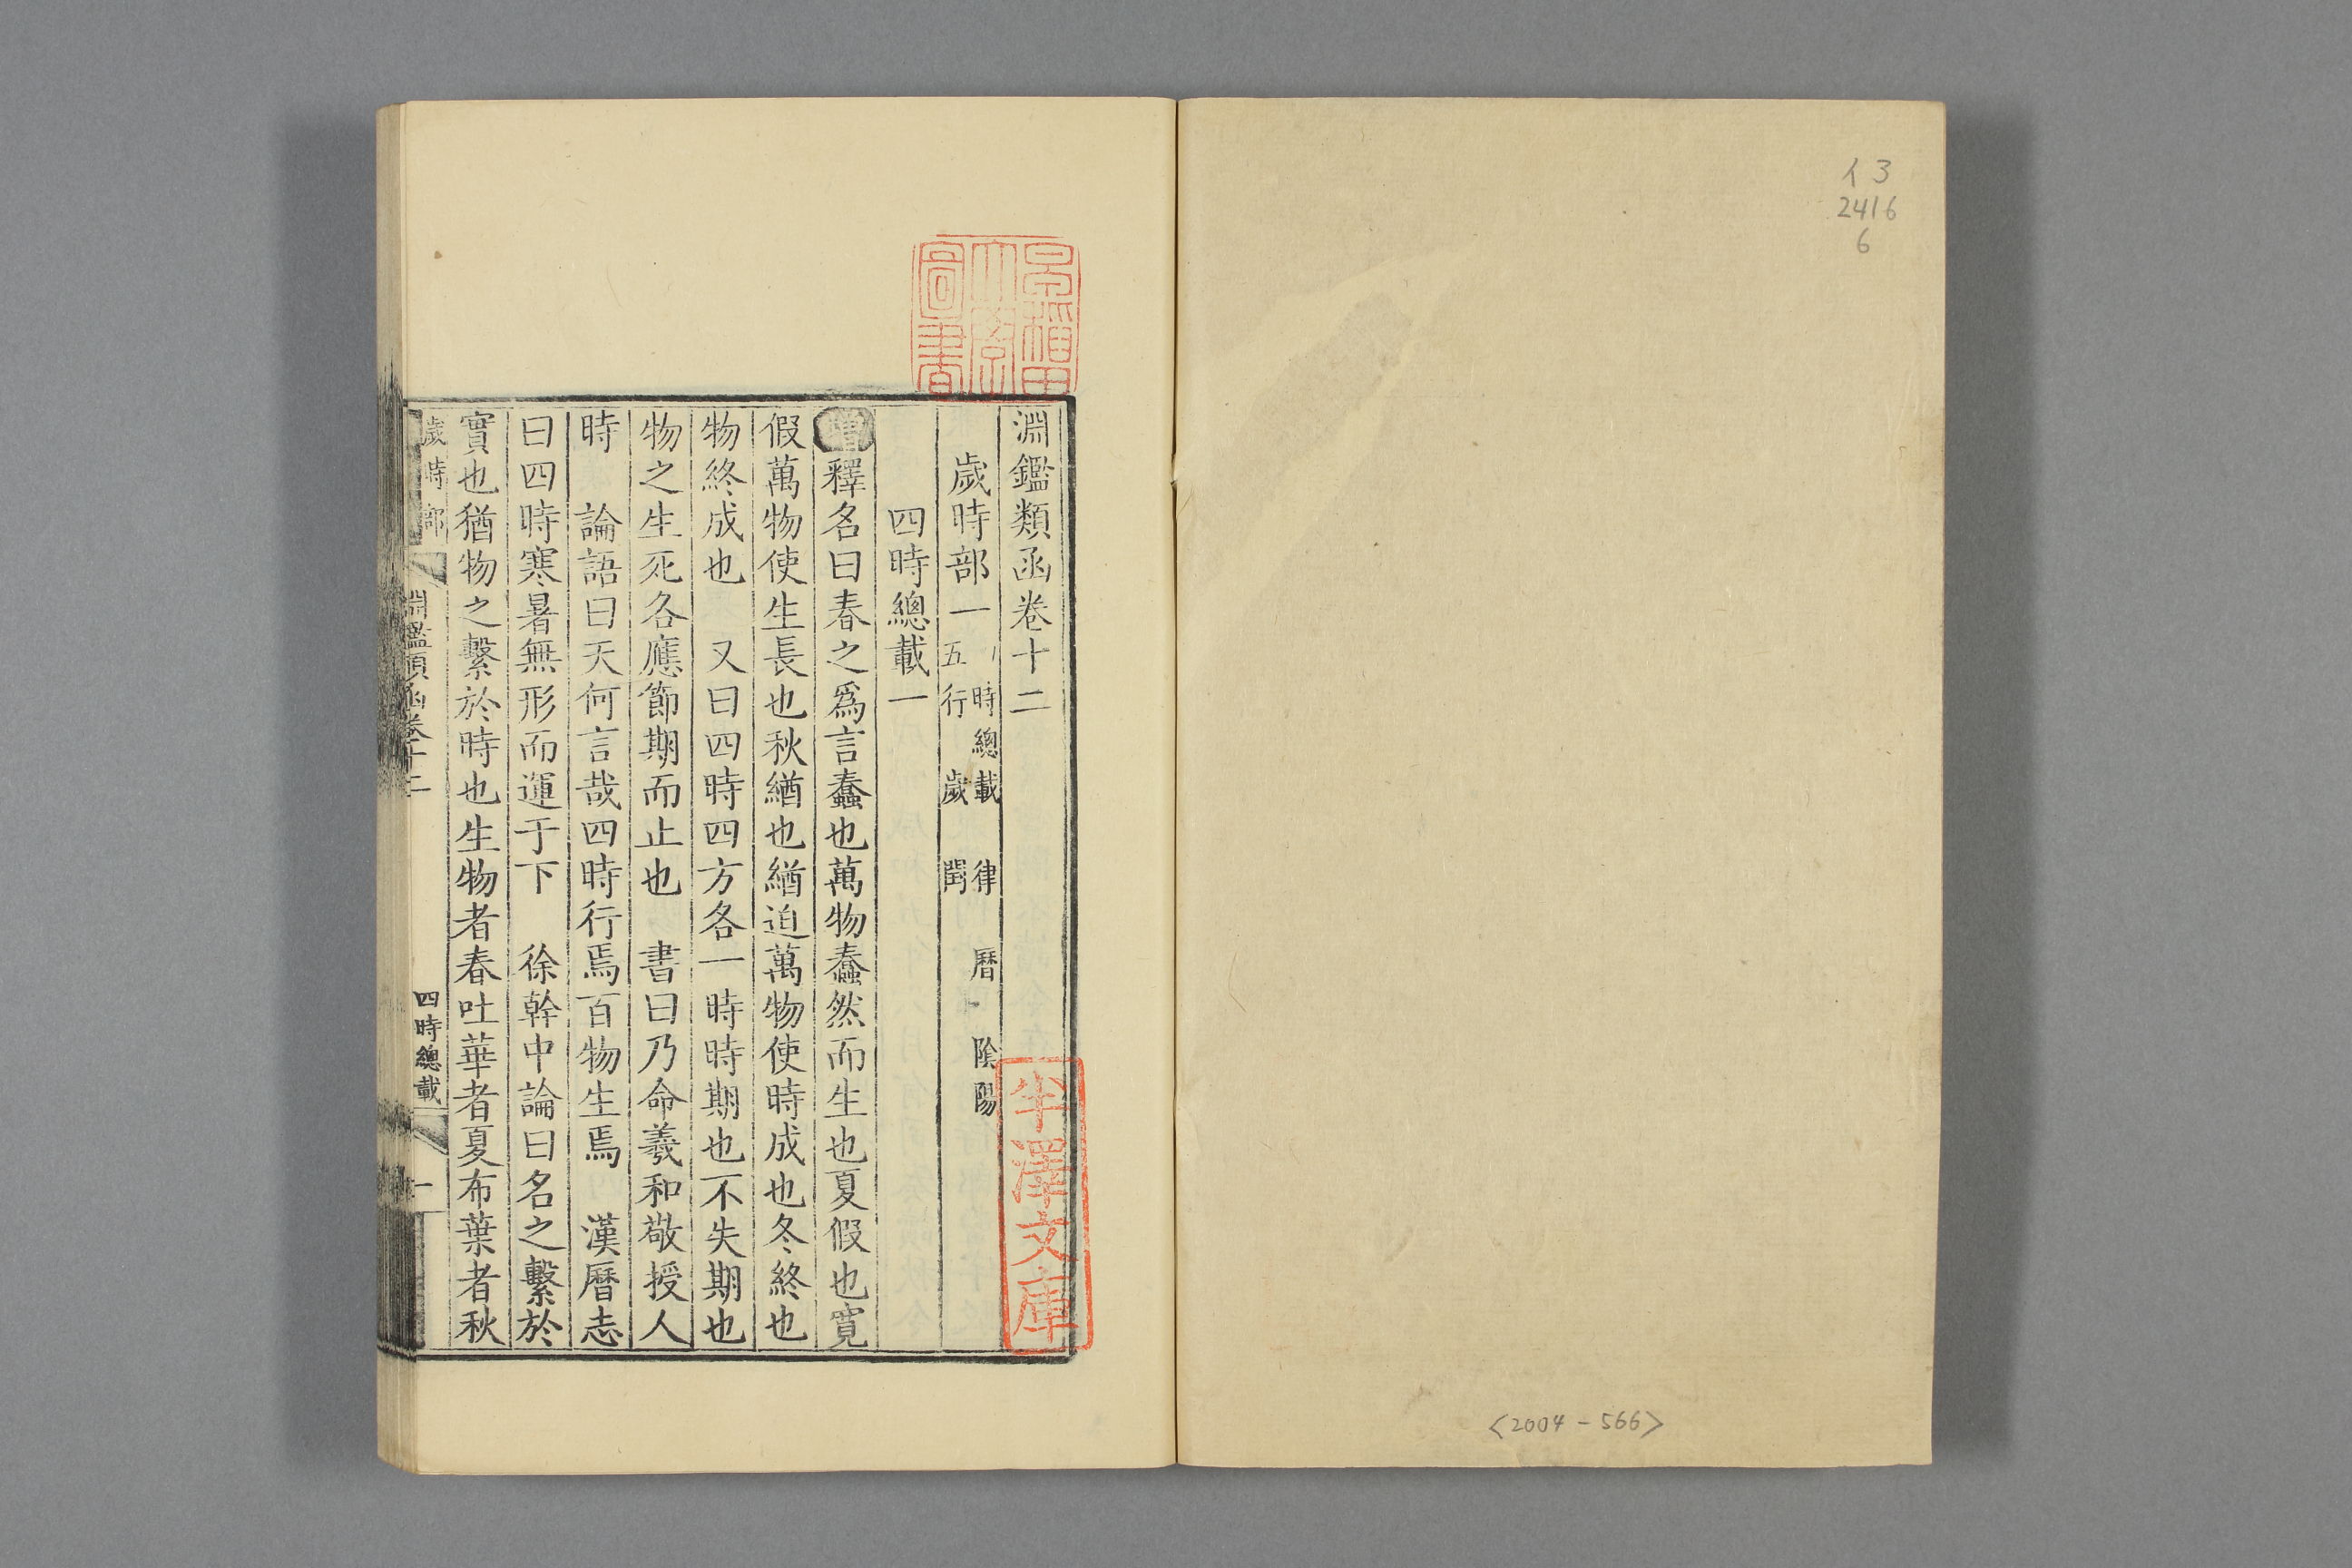 イ3
2416
6
<2004-566>
早稲田
大學
圖書
淵鑑類函卷十二
歲時部一
時總載 律 曆 陰陽
五行 歲 閏
四時總載一
增釋名曰春之爲言蠢也萬物蠢然而生也夏假也寬
假萬物使生長也秋緧也緧迫萬物使時成也冬終也
物終成也 又曰四時四方各一時時期也不失期也
物之生死各應節期而止也 書曰乃命羲和敬授人
時 論語曰天何言哉四時行焉百物生焉 漢曆志
曰四時寒暑無形而運于下 徐幹中論曰名之繫於
實也猶物之繫於時也生物者春吐華者夏布葉者秋
歲時部 淵鑑類函卷十二 四時總載 一
半澤文庫